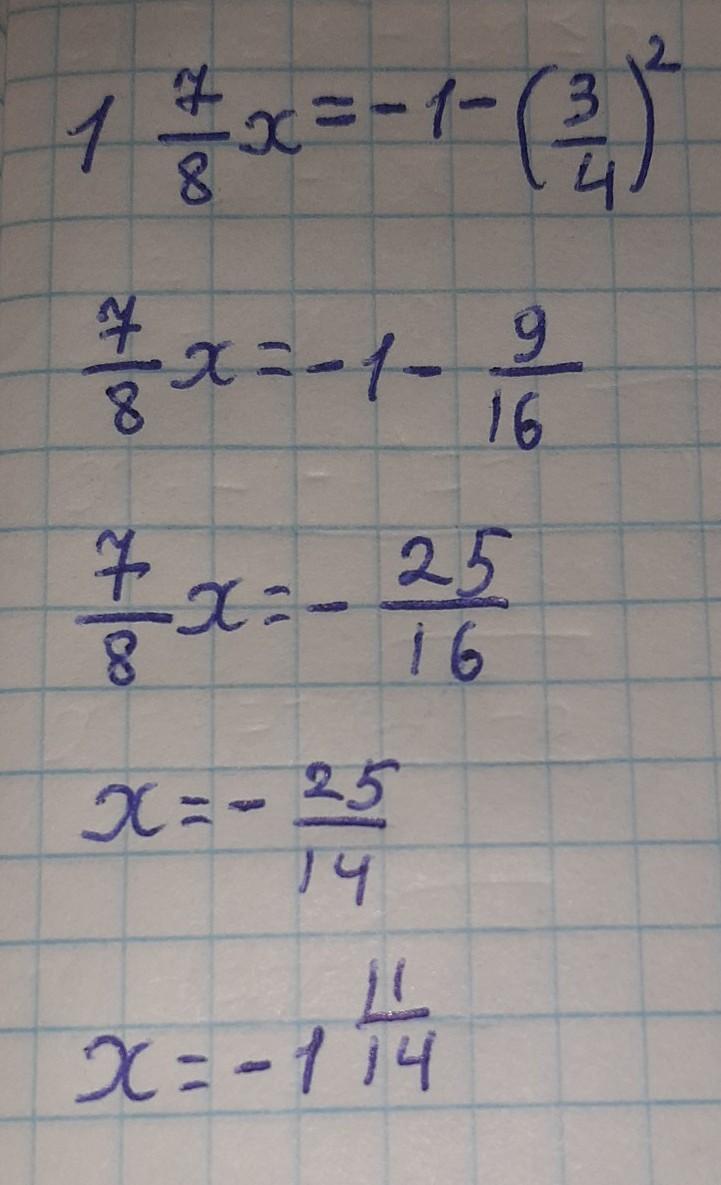 1 7/8 x = -1 - (3/4)²
7/8 x = -1 - 9/16
7/8 x = - 25/16
x = - 25/14
x = -1 11/14